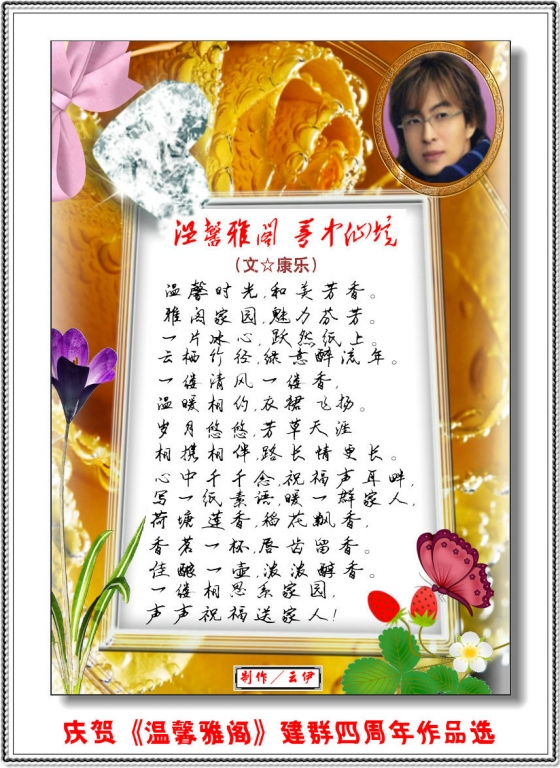 温馨雅阁 梦中仙境
(文☆康乐)
温馨时光,和美芳香。
雅阁家园,魅力芬芳。
一片冰心,跃然纸上。
云栖竹径,绿意醉流年。
一缕清风一缕香,
温暖相约,衣裙飞扬。
岁月悠悠,芳草天涯
相携相伴,路长情更长。
心中千千念,祝福声耳畔,
写一纸素语,暖一群家人,
荷塘莲香,稻花飘香,
香茗一杯,唇齿留香。
佳酿一壶,浓浓醇香。
一缕相思系家园,
声声祝福送家人!
制作/云伊
庆贺《温馨雅阁》建群四周年作品选